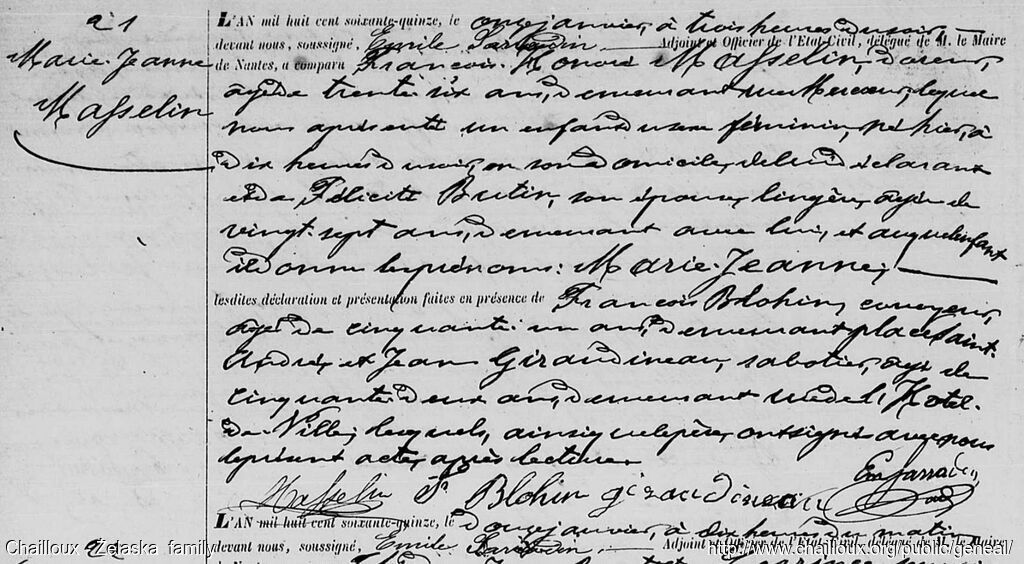 21
Marie-Jeanne
Masselin
L'AN mil huit cent soixante-quinze, le onze janvier, à trois heures du soir,
devant nous, soussigné, Emile Adjoint et Officier de l'Etat-Civil, délégué de M. le Maire
de Nantes, a comparu François-Honoré Masselin, doreur,
âgé de trente six ans, demeurant rue Mercoeur, lequel
nous a présenté un enfant du sexe féminin, né hier, à
dix heures du soir, en son domicile, de lui déclarant
et de Félicité Butin, son épouse, lingère, âgée de
vingt-sept ans, demeurant avec lui, et auquel enfant
il donne les prénoms: Marie-Jeanne;
lesdites déclaration et présentation faites en présence de François Blohin,
âgé de cinquante-un ans, demeurant place Saint-
André, et Jean Giraudineau, sabotier, âgé de
cinquante-deux ans, demeurant rue de l'Hotel-
de-Ville, lesquels, ainsi que le père, ont signé avec nous
le présent acte, après lecture.
Masselin Blohin giraudineau
L'AN mil huit cent soixante-quinze, le douze janvier, à dix heures du matin
devant nous, soussigné, Emile Adjoint et Officier de l'Etat-Civil, délégué de M. le Maire
Chailloux - Zelaska family
http://www.chailloux.org/public/geneal/